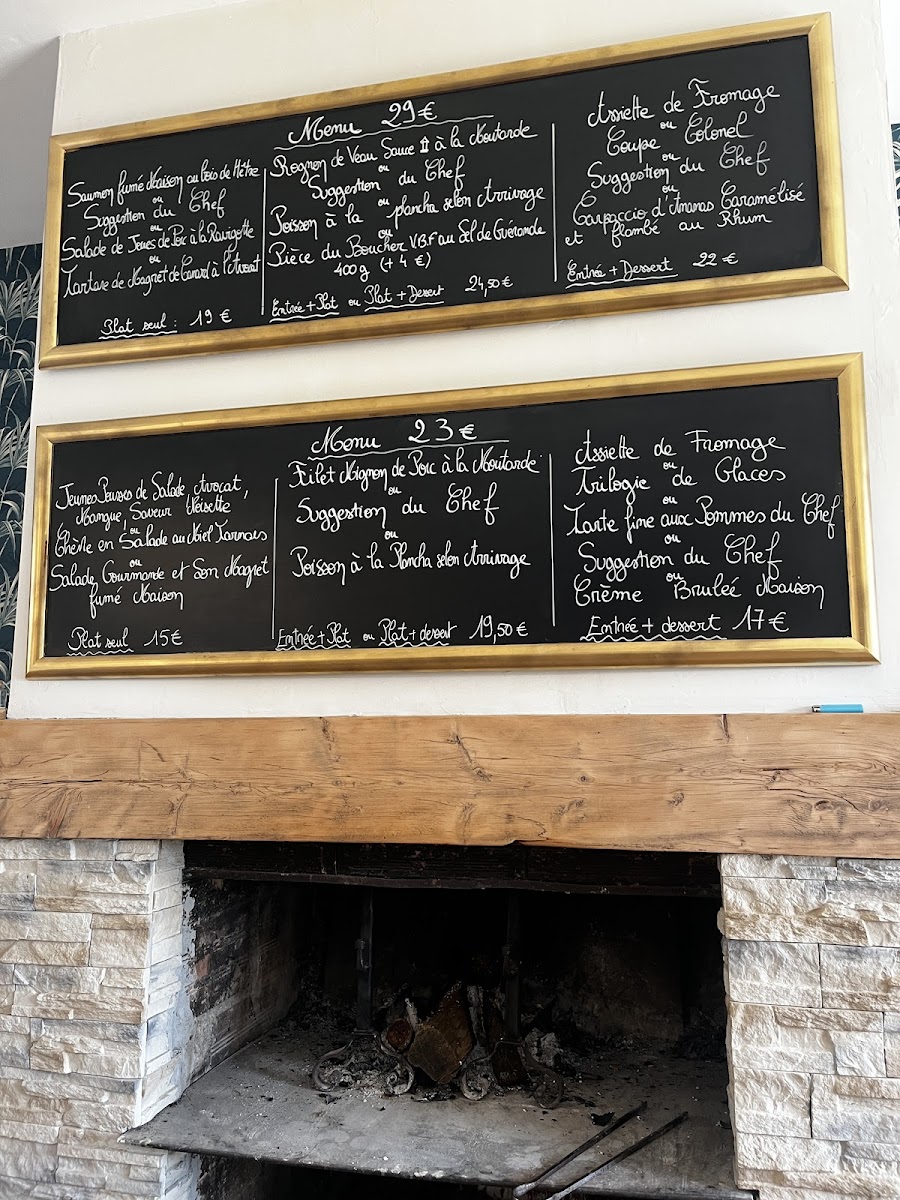 Menu 29€
Saumon fumé Maison au bois de Hêtre
ou
Suggestion du Chef
ou
Salade de Joues de Porc à la Ravigotte
ou
Tartare de Magret de Canard à l'Avocat
Plat seul : 19 €
Rognon de Veau Sauce à la Moutarde
ou
Suggestion du Chef
ou
Poisson à la plancha selon Arrivage
ou
Pièce du Boucher VBF au Sel de Guérande
400g (+ 4 €)
Entrée + Plat ou Plat + Dessert 24,50 €
Assiette de Fromage
ou
Coupe Colonel
ou
Suggestion du Chef
ou
Carpaccio d'Ananas Caramélisé
et flambé au Rhum
Entrée + Dessert 22 €
Menu 23€
Jeunes Pousses de Salade Avocat,
Mangue, Saveur Noisette
ou
Chèvre en Salade au Miel Tarnais
ou
Salade Gourmande et Son Magret
fumé Maison
Plat seul 15€
Filet Mignon de Porc à la Moutarde
ou
Suggestion du Chef
ou
Poisson à la Plancha selon Arrivage
Entrée + Plat ou Plat + dessert 19,50€
Assiette de Fromage
ou
Trilogie de Glaces
ou
Tarte fine aux Pommes du Chef
ou
Suggestion du Chef
ou
Crème Bruleé Maison
Entrée + dessert 17€